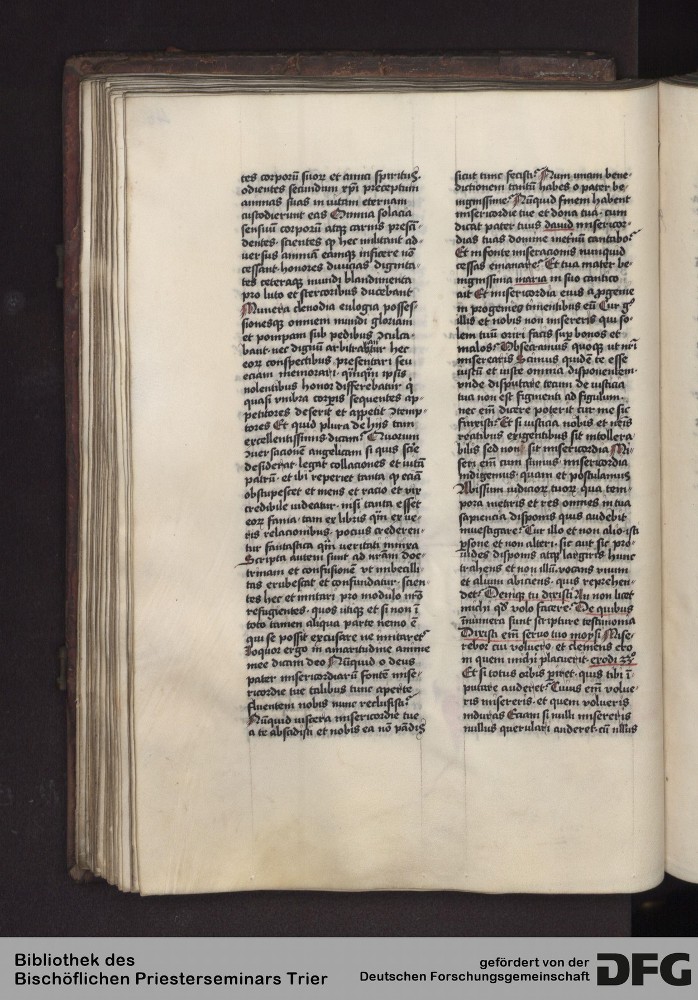 tes corporū suorū et amici spiritus.
odientes secundum xpi preceptum
animas suas in vitam eternam
custodierunt eas Omnia solacia
sensuū corporū atqꝫ carnis presci
dentes. scientes ꝙ hec militant ad-
uersus animā eamqꝫ inficere nō
cessant. honores diuicias dignita-
tes ceteraqꝫ mundi blandimenta
pro luto et stercoribus ducebant
Munera clenodia eulogia posses-
sionesqꝫ omnem mundi gloriam
et pompam sub pedibus ꝯculca-
bant. nec dignū arbitrabantur hec
eorū conspectibus presentari seu
eciam memorari. qm̄qm̄ ipsis
nolentibus honor differebatur q̇
quasi vmbra corpis sequentes ap-
petitores deserit et appetit ꝯtemp-
tores Et quid plura de hijs tam
excellentissimis dicam? Quorum
ꝯuersacionē angelicam si quis scire
desiderat legat collaciones et vitā
patrū. et ibi reperiet tanta ꝙ eciā
obstupescet et mens et racio et vix
credibile videatur. nisi tanta esset
eorū fama. tam ex libris qm̄ ex ve-
ris relacionibus. pocius crederen-
tur fantastica qm̄ veritati mixta
Scripta autem sunt ad nr̄am doc-
trinam et confusionē vt imbecilli-
tas erubescat et confundatur. scien-
tes hec et imitari pro modulo nrō
refugientes. quos itiqꝫ et si non ī
toto tamen aliqua parte nemo ē
qui se possit excusare ne imitaret'
Loquor ergo in amaritudine anime
mee dicam deo Nūquid o deus
pater misericordiarū fontē mise-
ricordie tue talibus tunc aperte
fluentem nobis nunc reclusisti?
Nūquid viscera misericordie tue
a te abscidisti et nobis ea nō pādis
sicut tunc fecisti? Num vnam bene-
dictionem tantū habes o pater be-
nignissime? Nūquid finem habent
misericordie tue et dona tua. cum
dicat pater tuus dauid misericor-
dias tuas domine ineternū cantabo?
Et infonte miseracionis nunquid
cessas emanare? Et tua mater be-
nignissima maria in suo cantico
ait Et misericordia eius a progenie
in progenies timentibus eū Cur gͦ
illis et nobis non misereris qui so-
lem tuū oriri facis sup bonos et
malos? Obsecramus quoqꝫ vt nr̄i
miserearis Scimus quidē te esse
iustū et iuste omnia disponentem.
vnde disputare tecum de iusticia
tua non est figmenti ad figulum.
nec em̄ dicere poterit cur me sic
finxisti? Et si iusticia nobis et nr̄is
reatibus exigentibus sit intollera
bilis sed non sit misericordia Mi-
seri em̄ cum simus misericordia
indigemus. quam et postulamus
Abissum iudiciorū tuorū qua tem-
pora metiris et res omnes in tua
sapiencia disponis quis audebit
inuestigare? Cur illo et non alio isti
psone et non alteri. sic aut sic pro-
uides disponis atqꝫ largiris hunc
trahens et non illū. vocans vnum
et alium abiciens. quis reprehen-
det? Denique tu dixisti An non licet
michi qd̄ volo facere? De quibus
īnumera sunt scripture testimonia
Dixisti em̄ seruo tuo moysi Mise-
rebor cui voluero. et clemens ero
in quem michi placuerit. exodi 33ͦ
Et si totus orbis piret. quis tibi ī-
putare auderet? Cuius em̄ volue-
ris misereris. et quem volueris
induras Eciam si nulli misereris
nullus querulari auderet. cū illius
Bibliothek des
Bischöflichen Priesterseminars Trier
gefördert von der
Deutschen Forschungsgemeinschaft
DFG